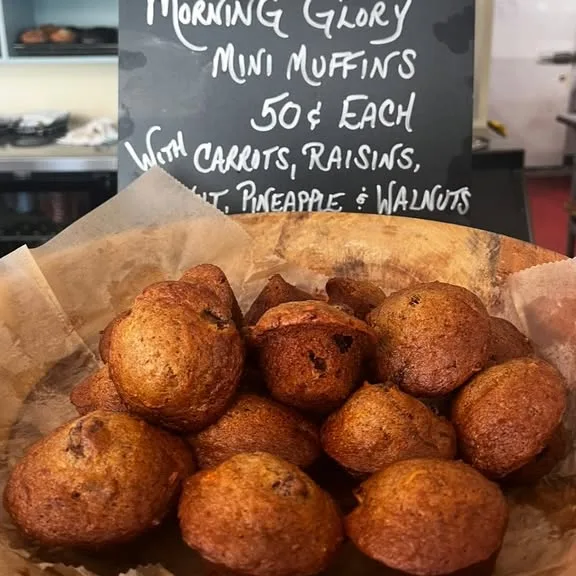 Morning Glory
Mini Muffins
50¢ Each
With Carrots, Raisins,
Pineapple & Walnuts